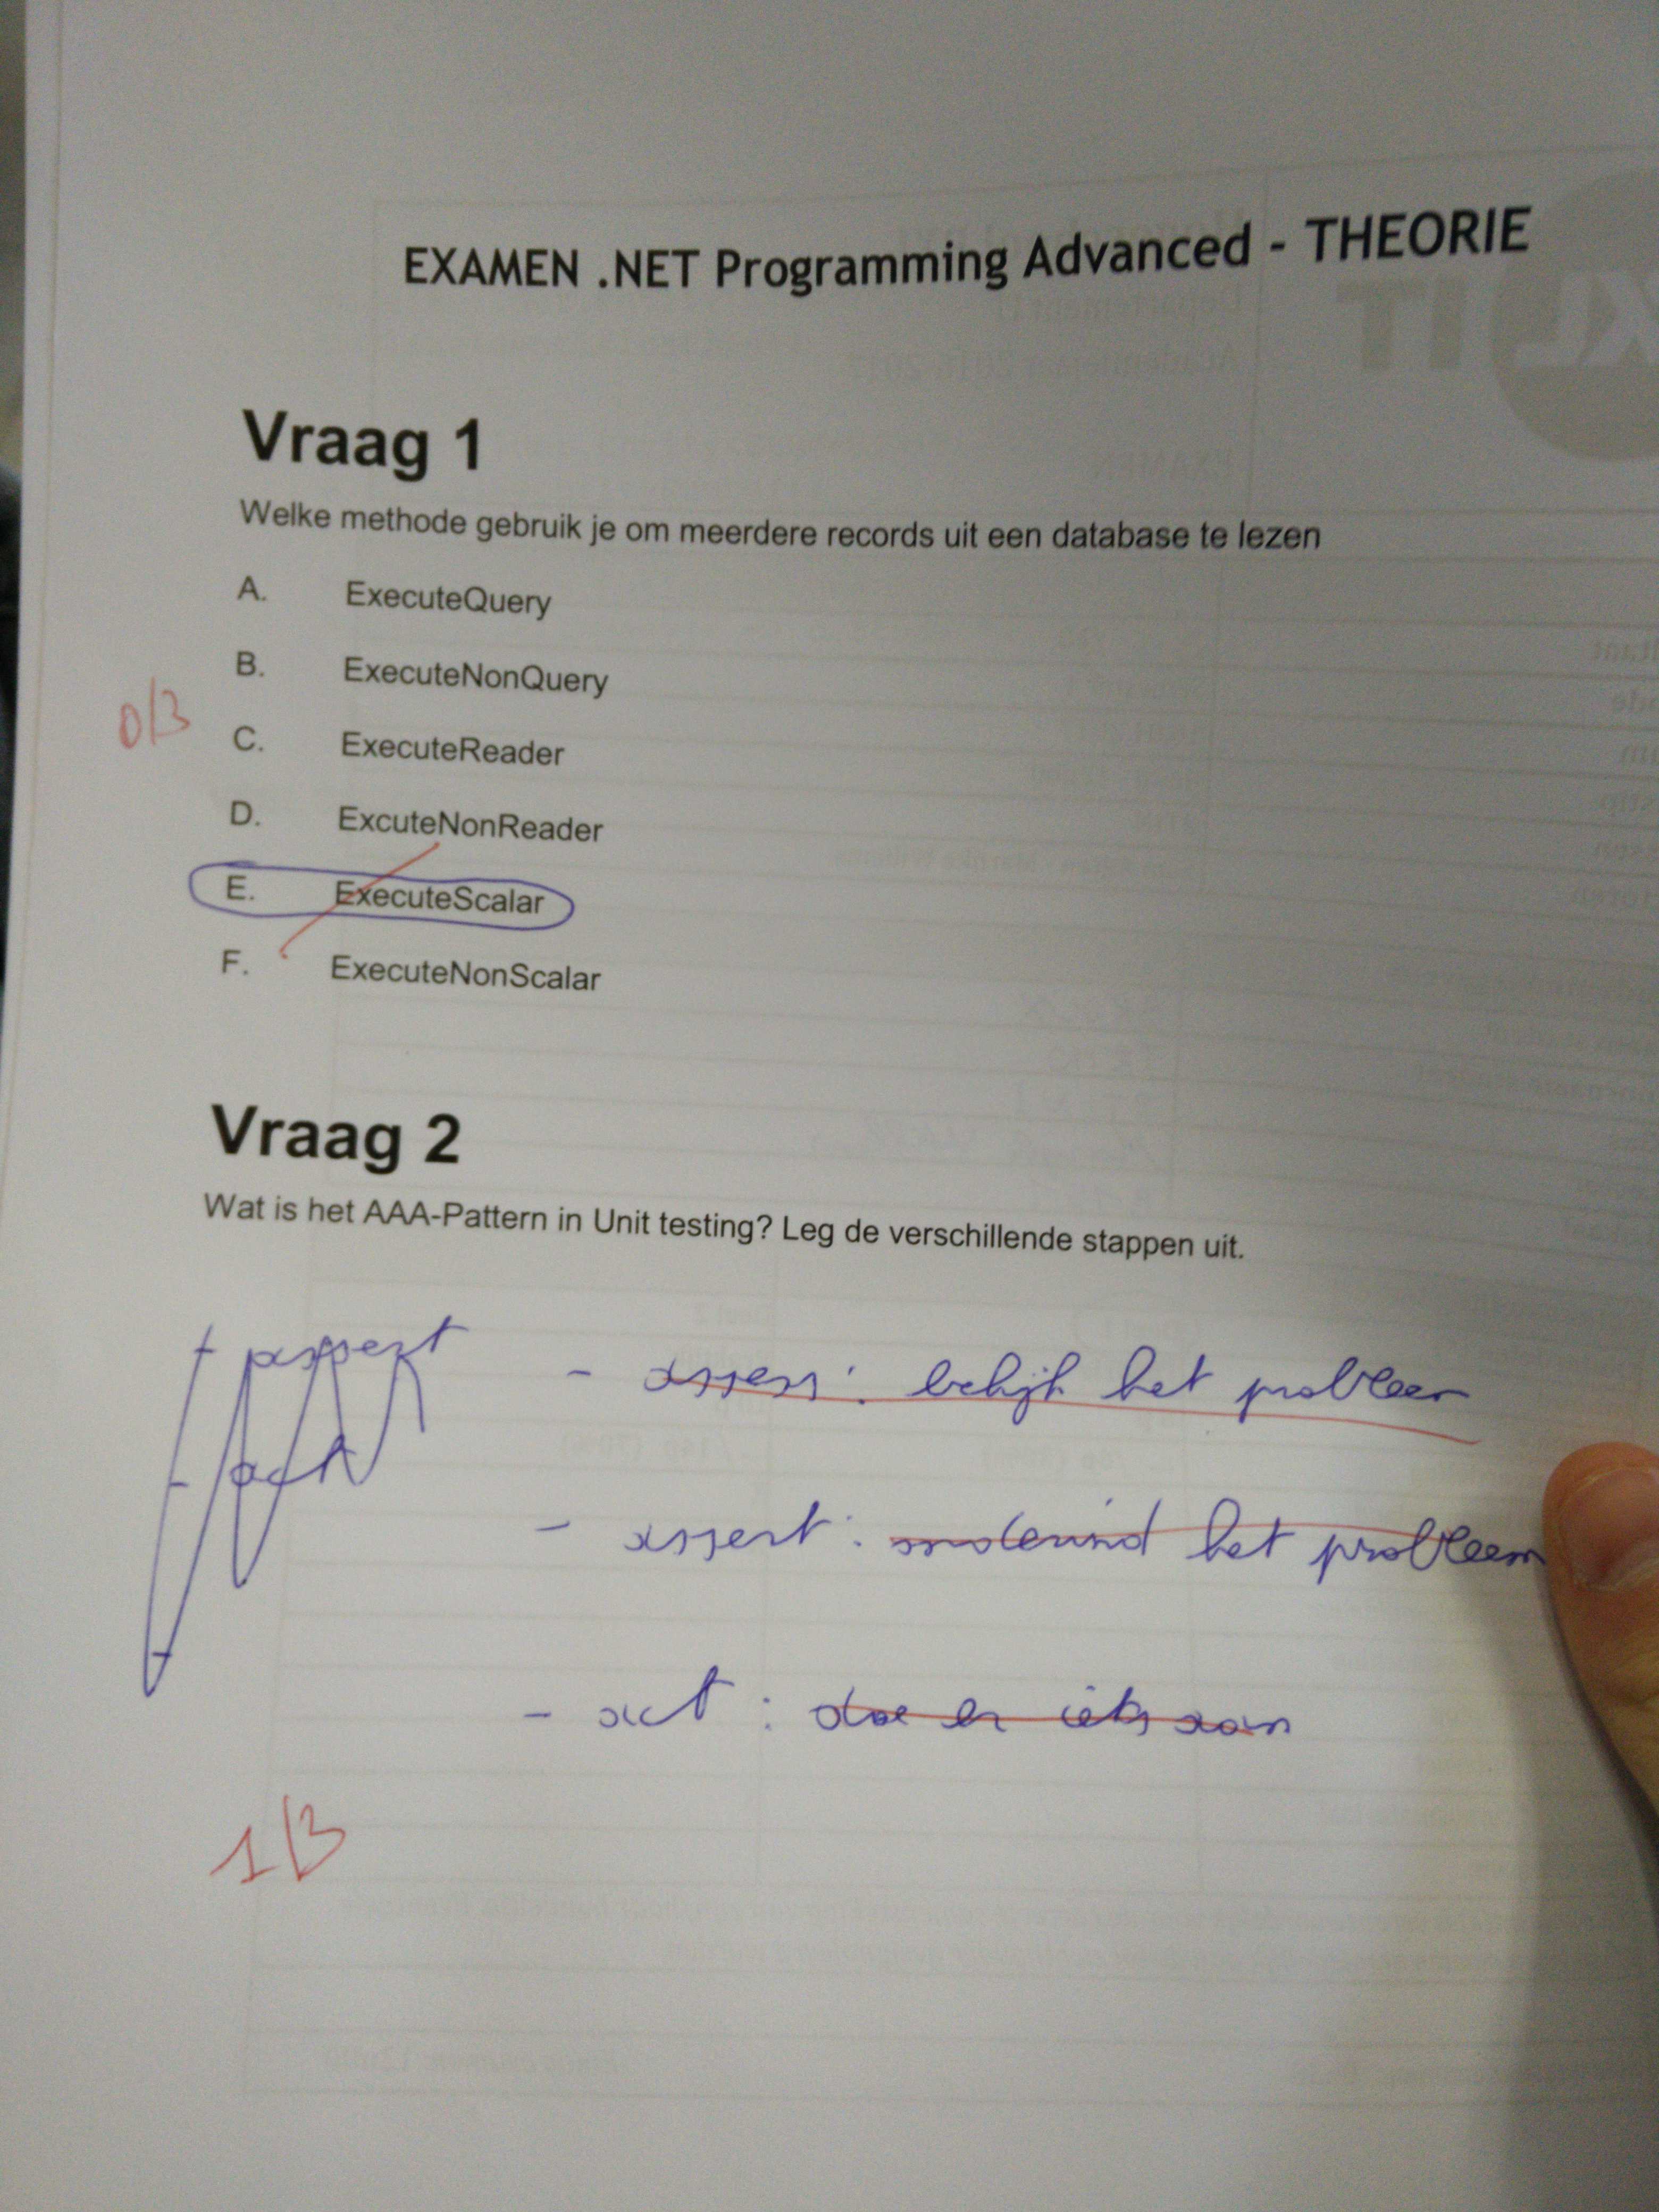 EXAMEN .NET Programming Advanced - THEORIE
Vraag 1
Welke methode gebruik je om meerdere records uit een database te lezen
A. ExecuteQuery
B. ExecuteNonQuery
0/3
C. ExecuteReader
D. ExcuteNonReader
E. ExecuteScalar
F. ExecuteNonScalar
Vraag 2
Wat is het AAA-Pattern in Unit testing? Leg de verschillende stappen uit.
- assess: bekijk het probleem
- act
- assert: het probleem
- act: doe er iets aan
1/3